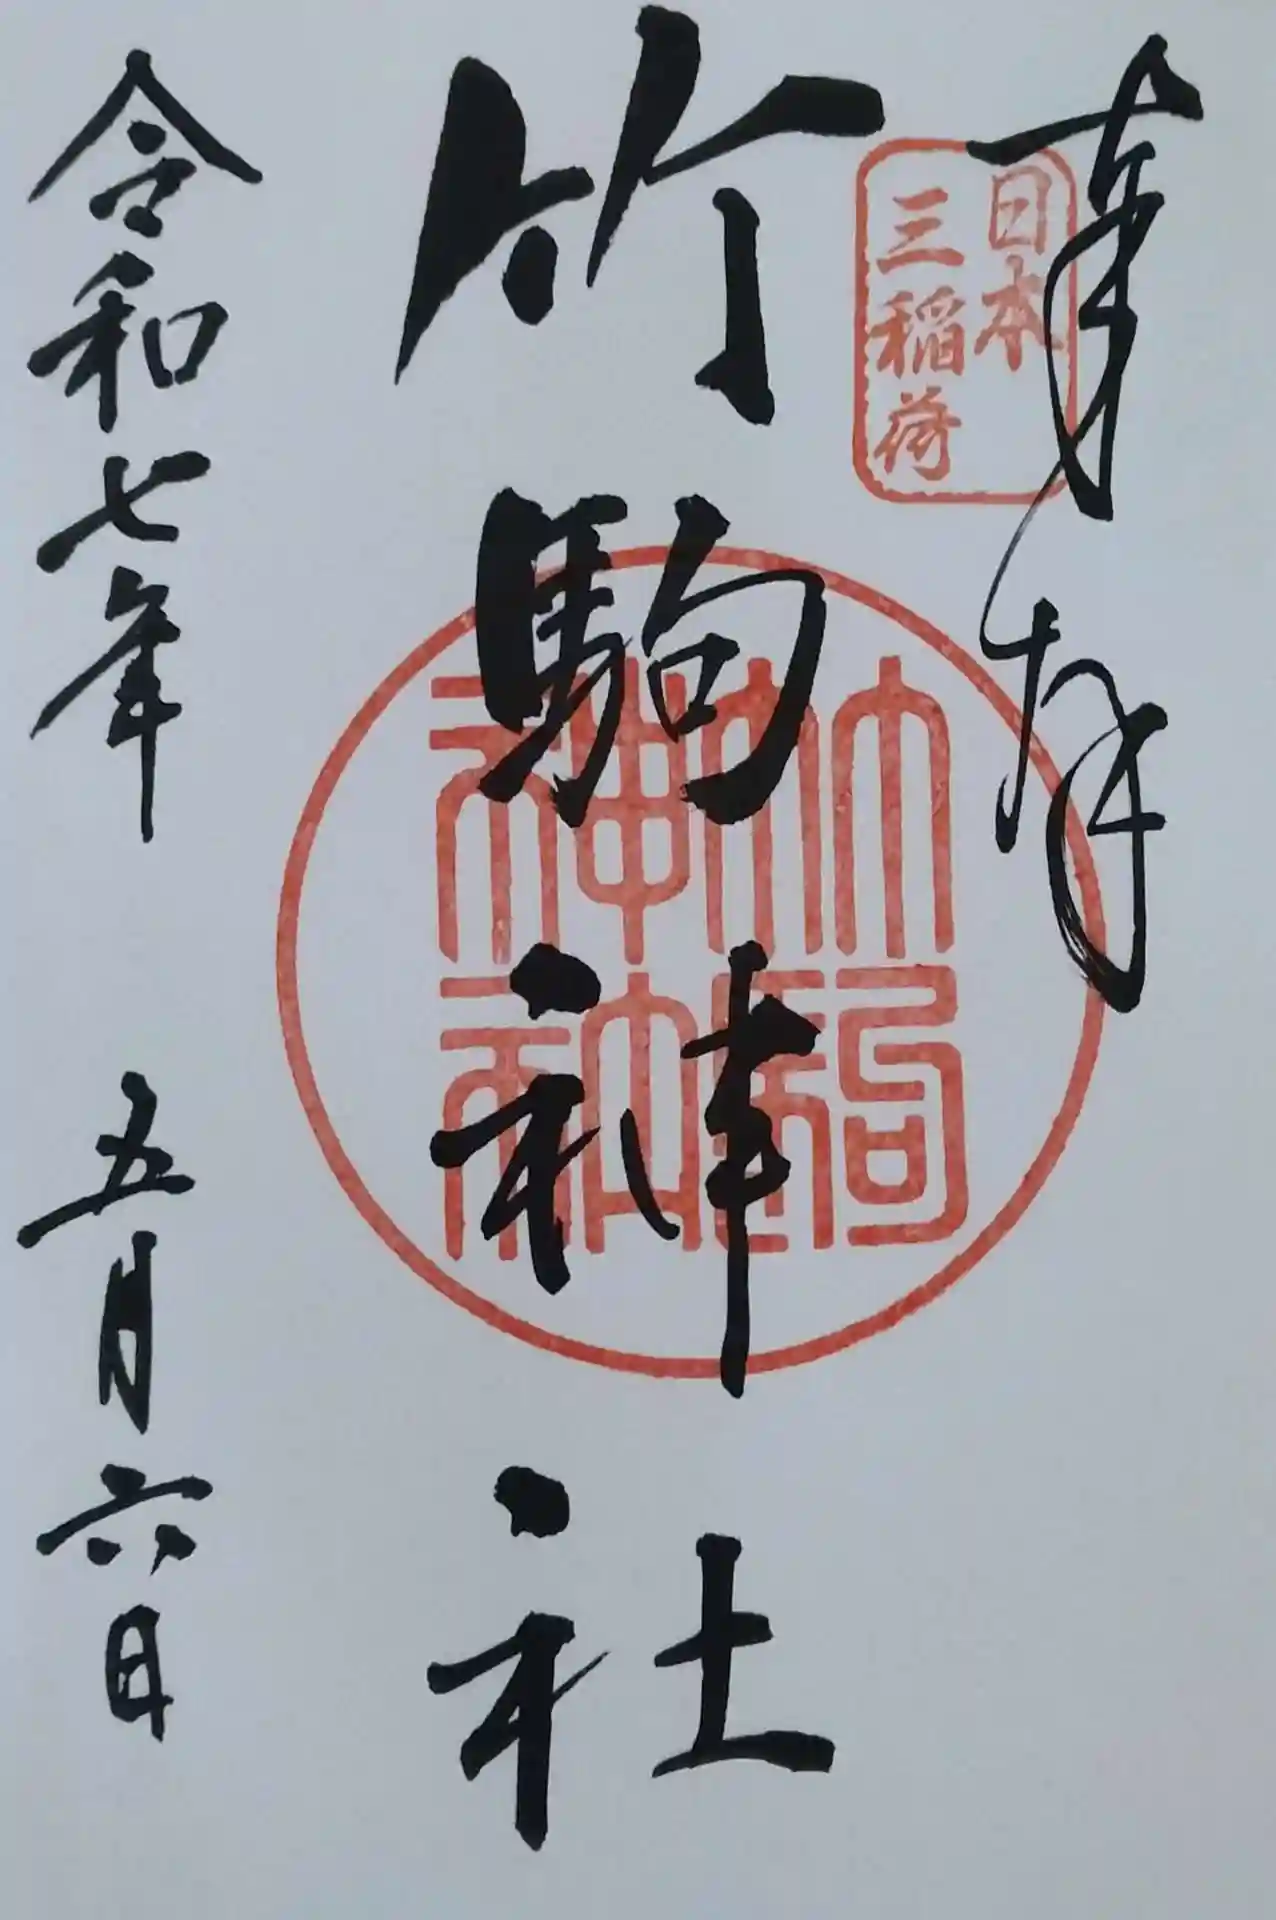 奉拝
日本
三稲荷
竹駒神社
竹駒
神社
令和七年 五月六日